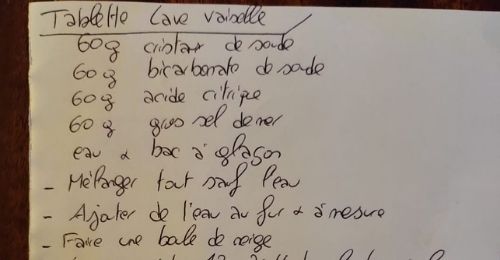 Tablette Lave vaisselle
60g cristaux de soude
60g bicarbonate de soude
60g acide citrique
60g gros sel de mer
eau & bac à glaçon
- Mélanger tout sauf l'eau
- Ajouter de l'eau au fur & à mesure
- Faire une boule de neige